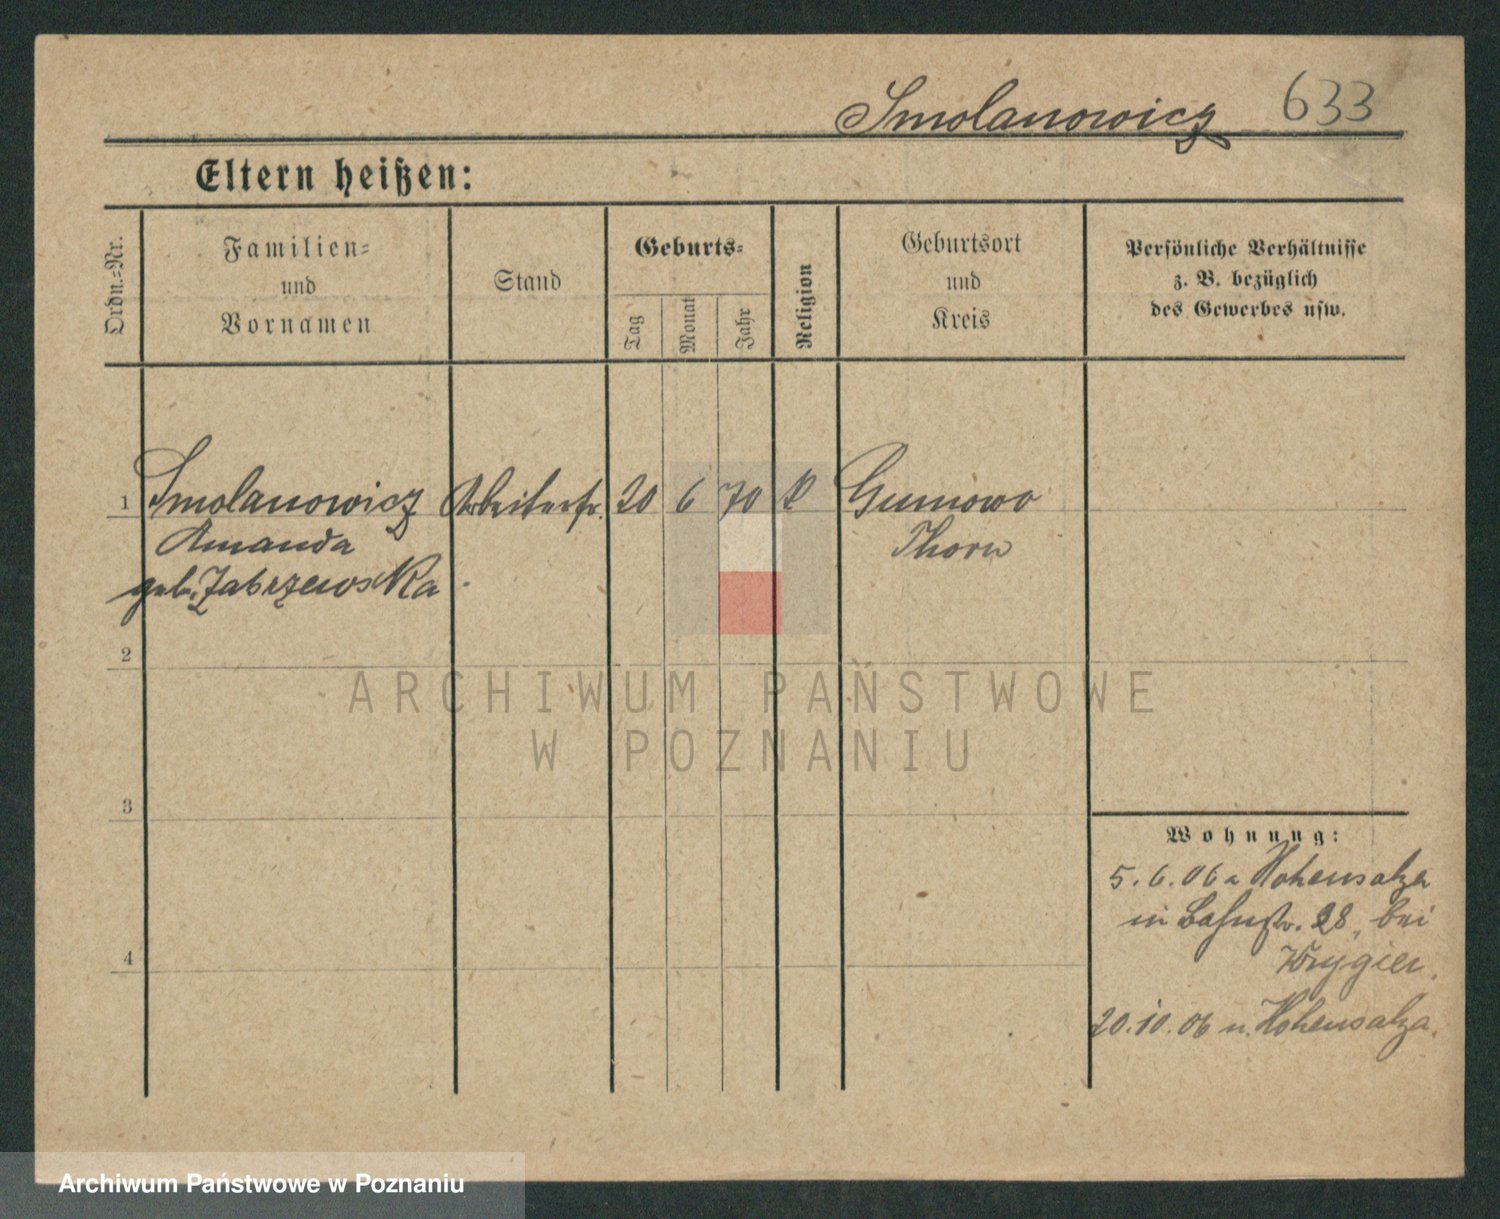 Smolanowicz 633
Eltern heißen:
Ordn.=Nr.
Familien=
und
Vornamen
Stand
Geburts=
Tag
Monat
Jahr
Religion
Geburtsort
und
Kreis
Persönliche Verhältnisse
z. B. bezüglich
des Gewerbes usw.
1 Smolanowicz Arbeiterfr. 20 6 70 k Gumowo
Amanda Thorn
geb. Zabrzewska
2
3
4
Wohnung:
5.6.06 a Hohensalza
in Bahnstr. 28, bei
Wrygier.
20.10.06 n. Hohensalza.
ARCHIWUM PAŃSTWOWE
W POZNANIU
Archiwum Państwowe w Poznaniu